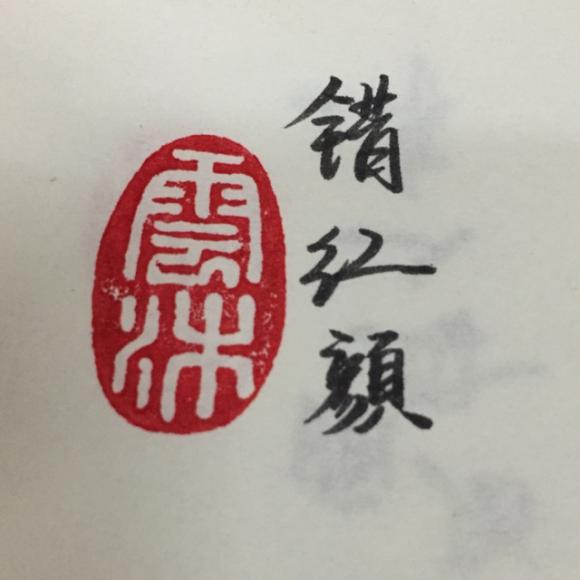 错红颜
雲沐